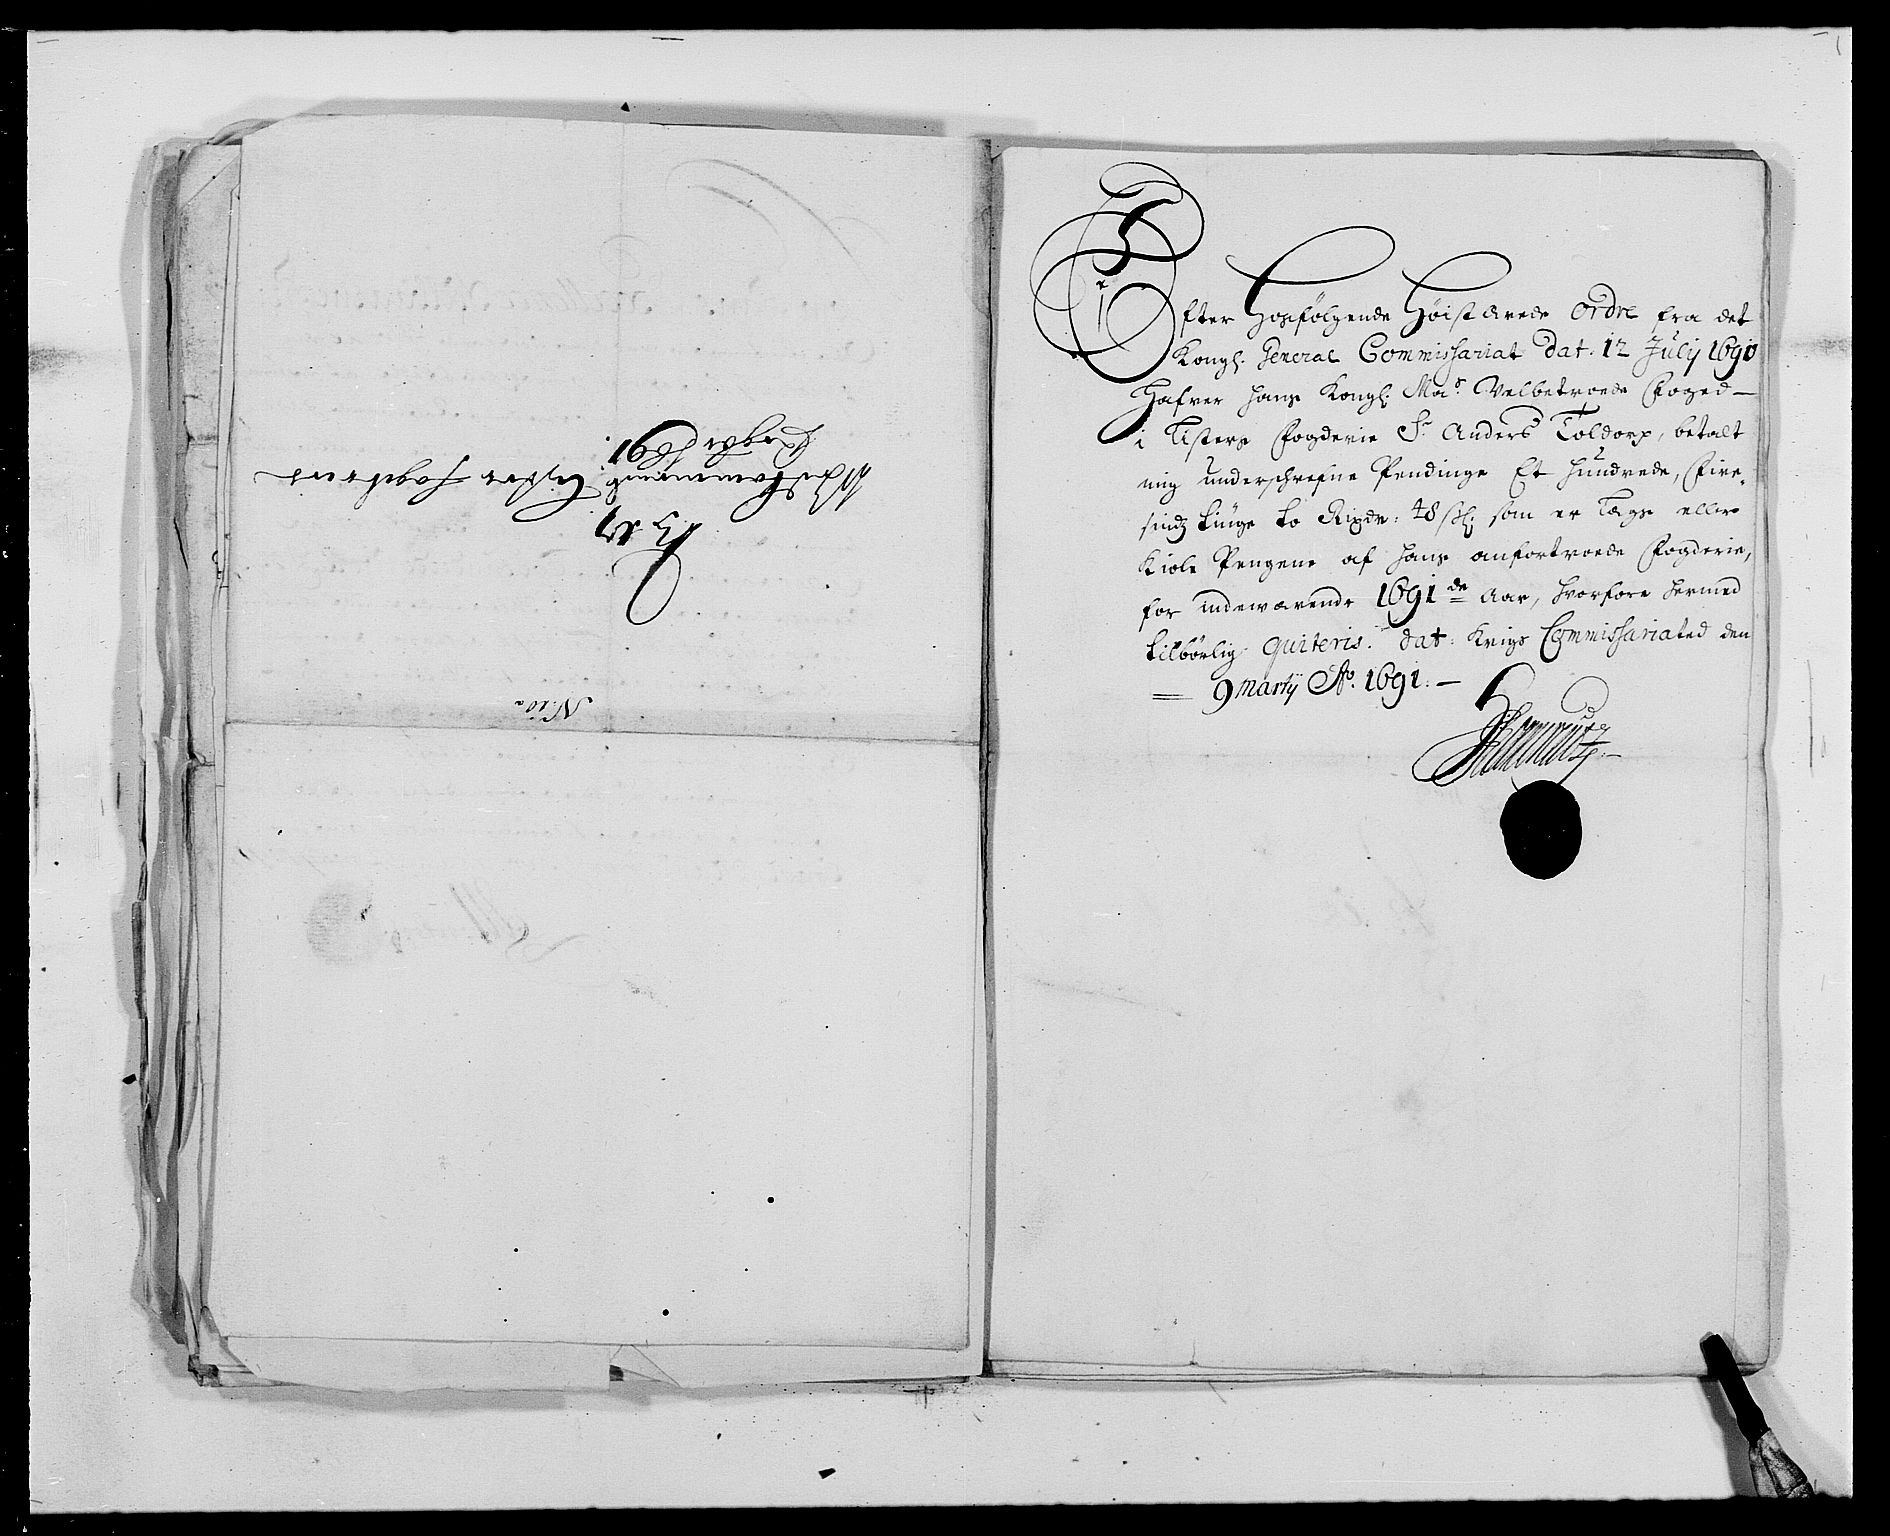 Efter Hosfølgende Høist ærede ordre fra det
Kongl: General Commissariat dat: 12 July 1690
Hafver hans Kongl: Ma:s Velbetroede Foged
i Listers Fogderie Sr Anders Toldorp, betalt
mig underschrefne Pendinge Et Hundrede, Fire
sindz tiuge to Rixdr: 48 sk: som er Lægs eller
Kiole Pengene af hans anfortroede Fogderie,
for indeværende 1691 de Aar, hvorfore hermed
tilbørlig qviteris. dat: Krigs Commissariated den
9 Martij Ao. 1691.
No: 10
1691